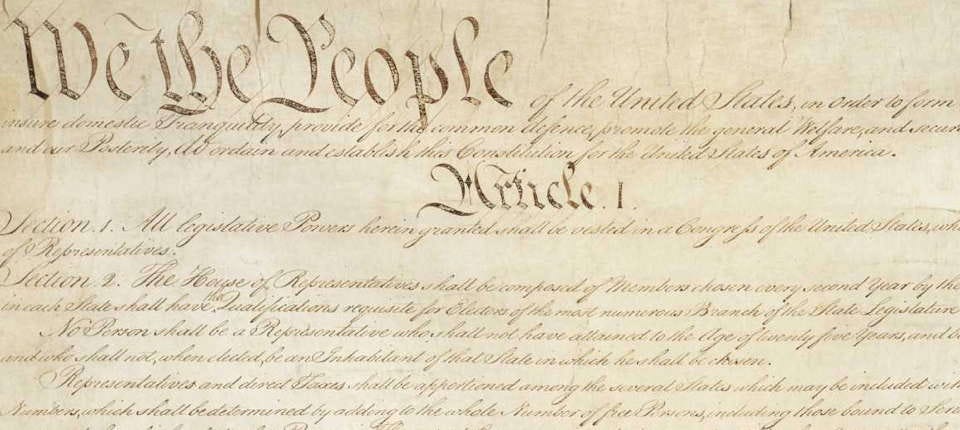 We the People of the United States, in Order to form
insure domestic Tranquility, provide for the common defence, promote the general Welfare, and secure
and our Posterity, do ordain and establish this Constitution for the United States of America.
Article. I.
Section. 1. All legislative Powers herein granted shall be vested in a Congress of the United States, whi
of Representatives.
Section. 2. The House of Representatives shall be composed of Members chosen every second Year by the
in each State shall have the Qualifications requisite for Electors of the most numerous Branch of the State Legislature
No Person shall be a Representative who shall not have attained to the Age of twenty five Years, and be
and who shall not, when elected, be an Inhabitant of that State in which he shall be chosen.
Representatives and direct Taxes shall be apportioned among the several States which may be included with
Numbers, which shall be determined by adding to the whole Number of free Persons, including those bound to Serv